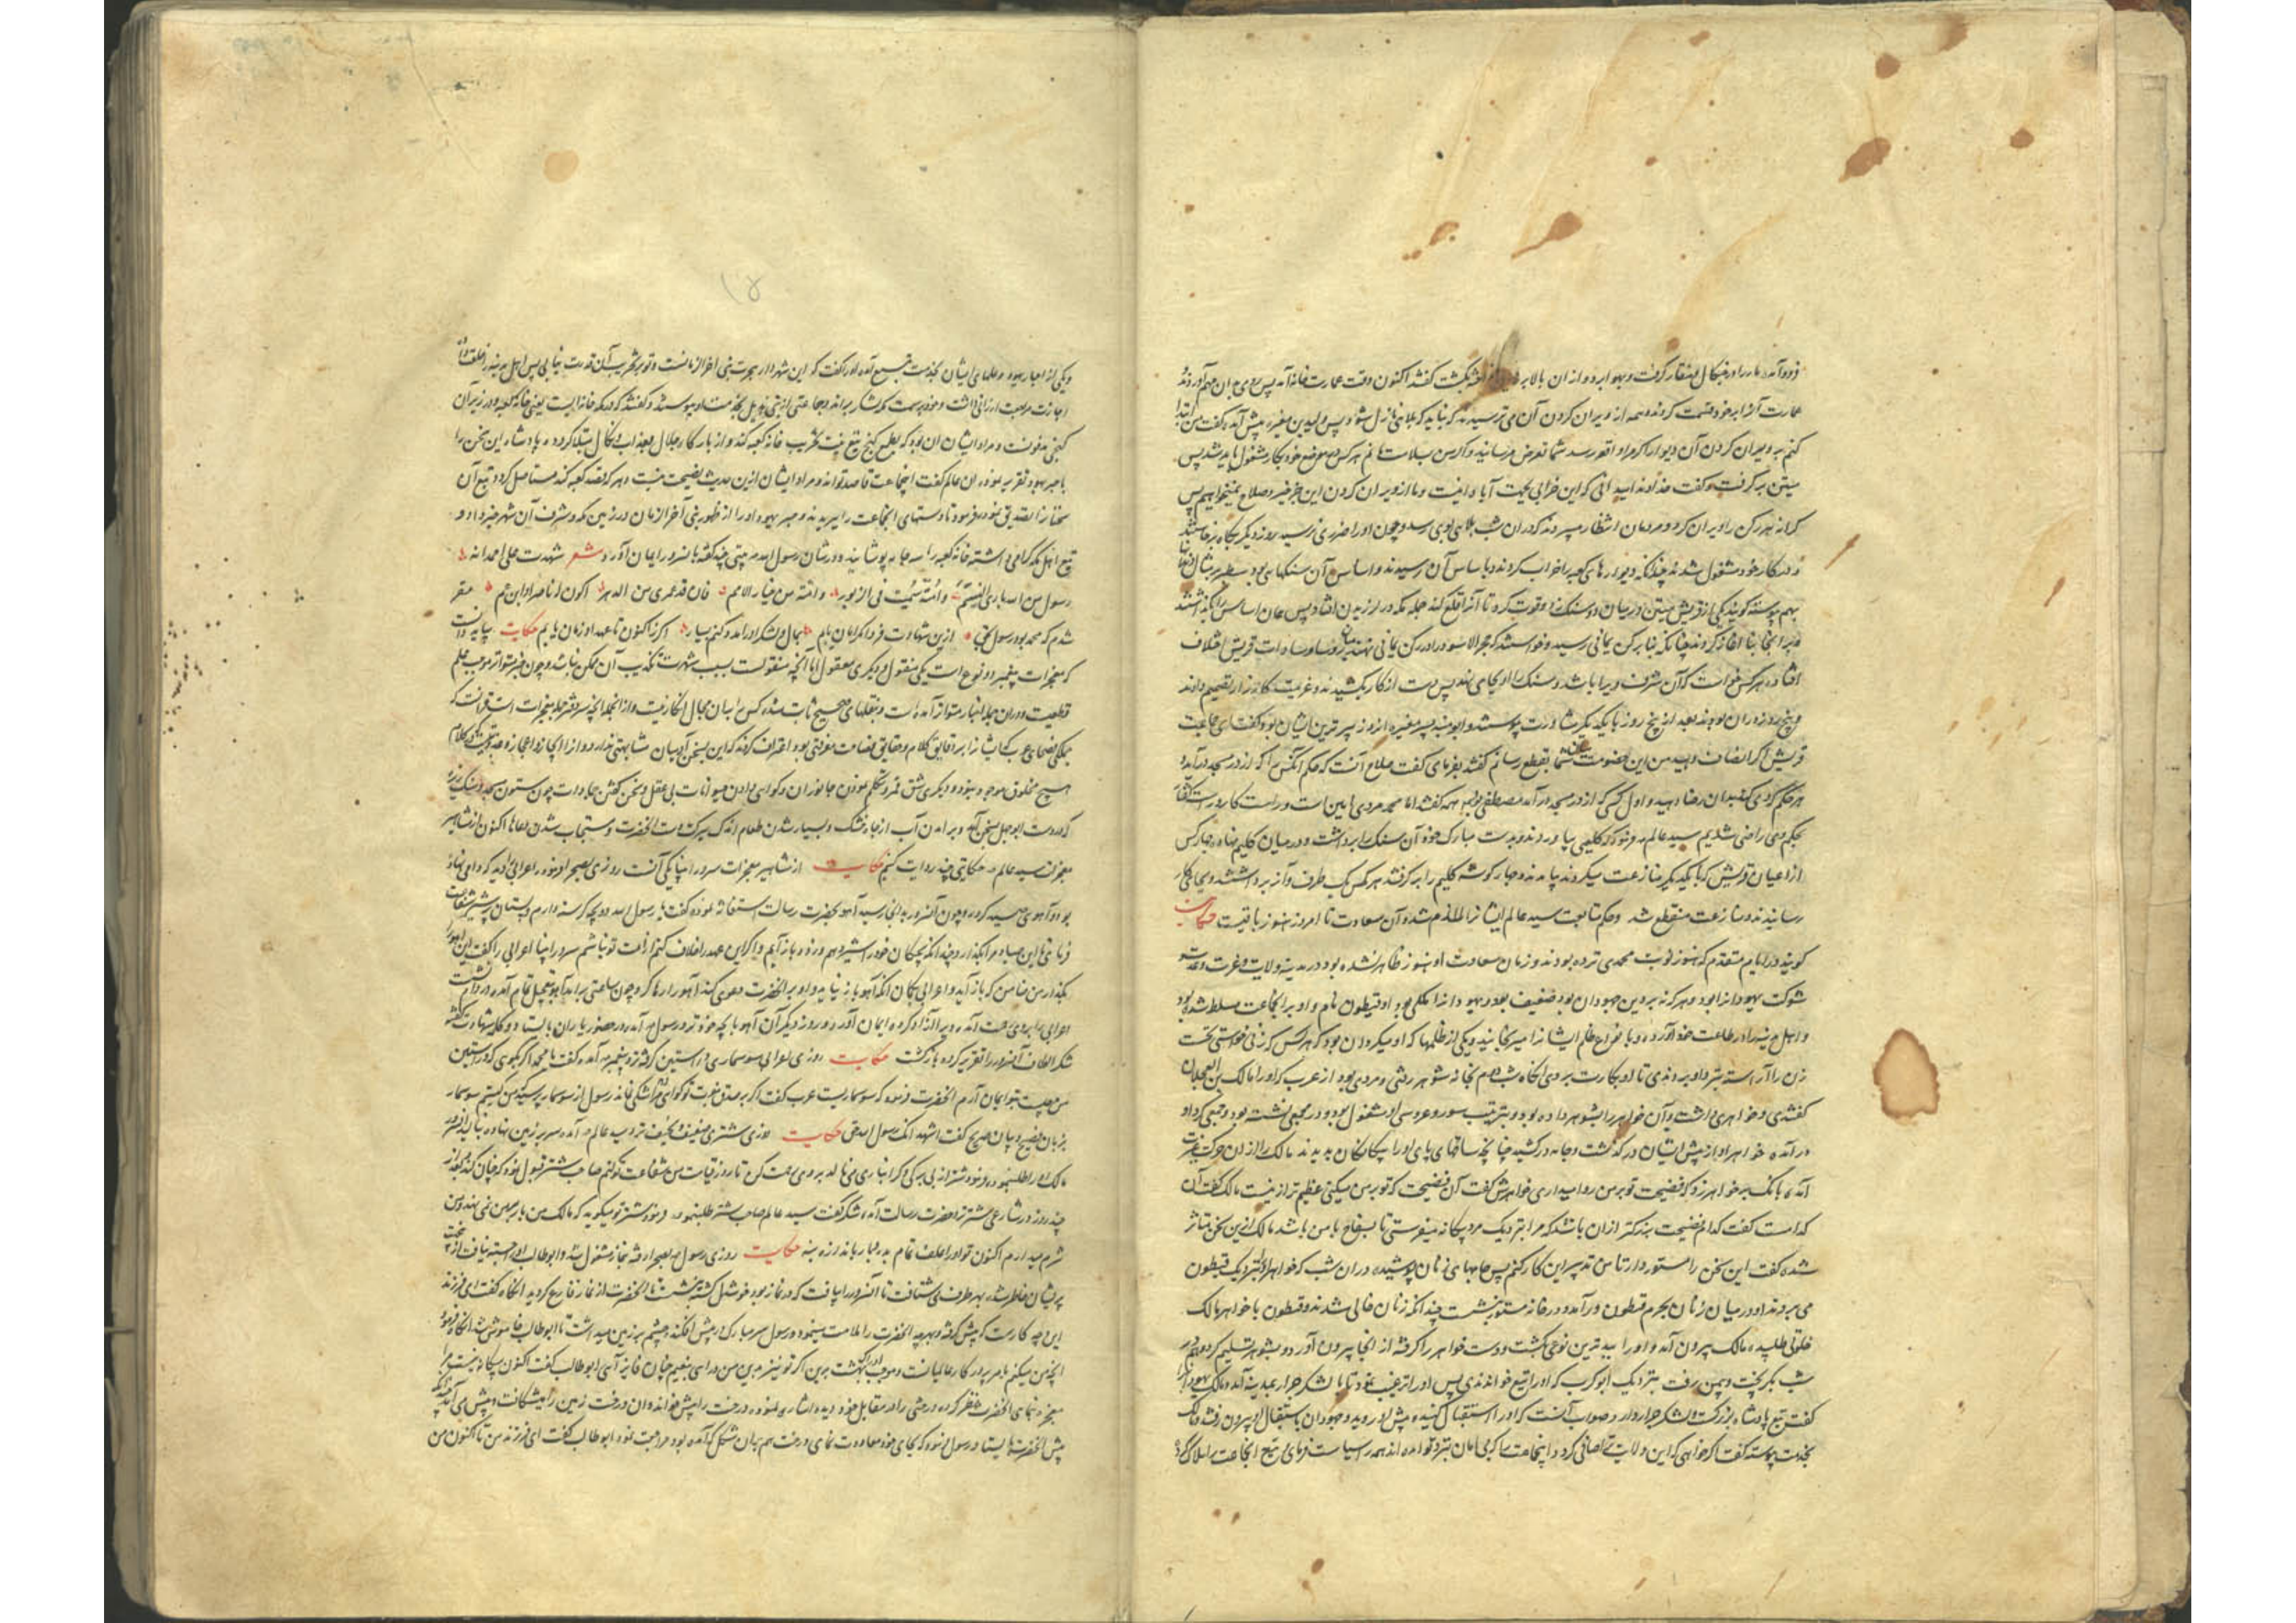 فرود آمد مار را در چنکال و منقار کرفت و بهوا برد و از ان بالا بر کشت کفتند اکنون وقت عمارت خانه آمد پس روی بدان مهم آوردند
عمارت آنرا بر خود قسمت کردند و همه از ویران کردن آن می ترسیدند که نباید که بلائی نازل شود پس ولید بن مغیره پیش آمد و کفت من ابتدا
کنم به ویران کردن آن دیوار اکر مرا واقعه رسد شما تعرض مرسانید و اکر من بسلامت مانم هر کس بموضع خود بکار مشغول باید شد پس
میتن بر کرفت و کفت خداوندا میدانی که این خرابی بجهت آبادانیست و ما از ویران کردن این جز خیر و صلاح نمیخواهیم پس
کرانه هر رکن را ویران کرد و مردمان انتظار میبردند که در ان شب بلایی بوی رسد و چون او را ضرری نرسید روز دیکر بکاه برخاستند
و در کار خود مشغول شدند چندانکه دیوارهای کعبه را خراب کردند و باساس آن رسیدند و اساس آن سنکهای بود سطبر
بهم پیوسته کویند یکی از قریش میتن در میان دو سنک زد و قوت کرد تا آنرا قلع کند جمله مکه در لرزیدن افتاد پس همان اساس را بکذاشتند
و بر انجا بنا آغاز کردند چنانکه بنا برکن یمانی رسید و خواستند که حجر الاسود را در رکن یمانی نهند میان روسا و سادات قریش اختلاف
افتاد و هر کس خواست که آن شرف ویرا باشد و سنک را او بجای نهد پس دست از کار بکشیدند و عزیمت کارزار تصمیم دادند
و پنج روز در ان بودند بعد از پنج روز با یکدیکر مشاورت پیوستند و ابو امیه بن مغیره انروز پیرترین ایشان بود کفت ای جماعت
قریش اکر انصاف دهید من این خصومت میان شما بقطع رسانم کفتند بفرمای کفت صلاح آنست که حکم آنکس را که از در مسجد در آید و
هر حکم که وی کند بدان رضا دهید و اول کسی که از در مسجد در آمد مصطفی بود همه کفتند اما محمد مردی امین است و راست کار و راست کفتار
بحکم وی راضی شدیم سید عالم فرمود که کلیمی بیاوردند و بدست مبارک خود آن سنک را برداشت و در میان کلیم نهاد و چهار کس
از اعیان قریش که با یکدیکر منازعت میکردند بیامدند و چهار کوشه کلیم را بر کرفتند هر کس یک طرف و آنرا برداشتند و بجای کار
رسانیدند و منازعت منقطع شد و حکم متابعت سید عالم ایشانرا لازم شد و آن سعادت تا امروز هنوز باقیست حکایت
کویند در ایام متقدم که هنوز نوبت محمدی نزده بودند و زمان سعادت او هنوز ظاهر نشده بود در مدینه ولایت و عزت و عدت و
شوکت یهودانرا بود و هر که نه بر دین جهودان بود ضعیف بود و یهودانرا ملکی بود او قیطون نام و او بر انجماعت مسلط شده بود
و اهل مدینه را در طاعت خود آورده و بانواع ظلم ایشانرا میرنجانید و یکی از ظلمها که او میکرد ان بود که هر کس که زنی خواستی نخست
زن را آراسته نزد او بردندی تا او بکارت ببردی آنکاه شب دوم بخانه شوهر رفتی و مردی بود از عرب که او را مالک بن العجلان
کفتندی و خواهری داشت و آن خواهر را بشوهر داده بود و بترتیب سور و عروسی او مشغول بود و در مجمعی نشسته بود
در آمد و خواهر او از پیش ایشان در کذشت و جامه در کشید چنانچه ساقهای پای او را بیکانکان بدیدند مالک را از ان حرکت غیرت
آمد و بانک بر خواهر زد که فضیحت تو بر من روا میداری خواهرش کفت آن فضیحت که تو بر من میکنی عظیم تر ازینست مالک کفت آن
کدامست کفت کدام فضیحت بزرکتر از ان باشد که مرا بنزدیک مرد بیکانه میفرستی تا بسفاح با من باشد مالک ازین سخن متاثر
شده کفت این سخن را مستور دار تا من تدبیر این کار کنم پس جامهای زنان پوشیده در ان شب که خواهر او را بنزدیک قیطون
می بردند او در میان زنان بحرم قیطون در آمد و در خانه مستور بنشست چندانکه زنان خالی شدند و قیطون با خواهر مالک
خلوتی طلبید مالک بیرون آمد و او را ببدترین نوعی بکشت و دست خواهر را کرفته از انجا بیرون آورد و بشوهر تسلیم کرد
شب بکریخت و بیمن رفت بنزدیک ابو کرب که او را تبع خواندندی پس او را ترغیب نمود تا با لشکر جرار بمدینه آمد و مالک یهود را
کفت تبع پادشاه بزرکست و لشکر جرار دارد صواب آنست که او را استقبال کنید و پیش او روید و جهودان باستقبال او بیرون رفتند و مالک
بخدمت پیوسته کفت اکر خواهی که این ولایت ترا صافی کردد اینجماعت را که بی امان بنزد تو آمده اند همه را سیاست فرمای تبع انجماعت را هلاک کرد
۱۴
و یکی از احبار یهود و علمای ایشان بخدمت تبع آمد و او را کفت که این شهر دار هجرت نبی اخر الزمانست و تو بر تخریب آن قدرت نیابی پس اهل مدینه را
اجازت مرجعت ارزانی داشت و خود بسمت مکه لشکر براند و جماعتی از بنی هذیل بخدمت او پیوستند و کفتند که در مکه خانه ایست یعنی خانه کعبه و در زیر آن
کنجی مدفونست و مراد ایشان ان بود که بطمع کنج تبع نیت تخریب خانه کعبه کند و از بارکاه جلال بعذاب و نکال مبتلا کردد پادشاه این سخن را
با حبر یهود تقریر نمود ان عالم کفت اینجماعت قاصد تواند و مراد ایشان ازین حدیث نصیحت نیست و هر که قصد کعبه کند مستاصل کردد تبع آن
سخنانرا تصدیق نمود و فرمود تا دستهای انجماعت را ببریدند و حبر یهود او را از ظهور نبی آخر الزمان در زمین مکه و شرف آن شهر خبر داد و
تبع اهل مکه کرامی داشته خانه کعبه را سه جامه پوشانید و در شان رسول الله بیتی چند کفته بانسرور ایمان آورد شعر شهدت علی احمد انه
رسول من الله باری النسم و امته سمیت فی الزبور و امته من خیار الامم فان قد عمری من الدهر اکون له ناصرا و ابن عم مقر
شدم که محمد بود رسول بحق ازین شهادت فردا کرامیان یابم بمال و لشکر او را مدد کنم بسیار اکر ز اکنون تا عهد او زمان یابم حکایت بباید دانست
که معجزات پیغمبر دو نوع است یکی منقول و دیکری معقول اما آنچه منقولست بسبب شهرت تکذیب آن ممکن نباشد و چون خبر متواتر موجب علم
قطعیست و در ان جمله اخبار متواتر آمده است و بنقلهای صحیح ثابت شده کس را بر ان مجال انکار نیست و از انجمله آنچه سر دفتر جمله معجزات است قرآنست که
جملکی فصحای عرب که ایشانرا بر دقایق کلام و حقایق فصاحت معرفتی بود اعتراف کردند که این سخن بسخن آدمیان مشابهتی ندارد و از ایجاز و اعجاز
هیچ مخلوق موجود نبود و دیکری شق قمر و تکلم نمودن جانوران و کواهی دادن حیوانات بی عقل و سخن کفتن جمادات چون ستون مسجد و سنک ریزه
که در دست ابو جهل بسخن آمد و بر امدن آب از چاه خشک و بسیار شدن طعام اندک ببرکت دست انحضرت و مستجاب شدن دعاها اکنون از مشاهیر
معجزات سید عالم حکایتی چند روایت کنیم حکایت از مشاهیر معجزات سرور انبیا یکی آنست روزی بصحرا رفته بود اعرابی را دید که دامی نهاده
بود و آهوی صید کرده و چون آنسرور بدانجا رسید آهو بحضرت رسالت استغاثه نموده کفت یا رسول الله دو بچه کرسنه دارم و پستان پر شیر شفاعت
فرمای تا این صیاد مرا بکذارد چندانکه بچکان خود را شیر دهم و زود باز آیم و اکر این عهد را خلاف کنم از امت تو نباشم سرور انبیا اعرابی را کفت این آهو را
بکذار من ضامن که باز آید و اعرابی بکمان آنکه آهو باز نیاید و او بر انحضرت دعوی کند آهو را رها کرد و چون ساعتی بر آمد آهو بتعجیل تمام آمد
اعرابی را بروی رحمت آمد و ویرا آزاد کرده ایمان آورد و روز دیکر آن آهو با بچه خود نزد رسول آمد و در حضور یاران بایستاد و کلمه شهادت کفته
شکر الطاف آنسرور را تقریر کرده بازکشت حکایت روزی اعرابی سوسماری در آستین کرفته نزد پیغمبر آمد و کفت یا محمد اکر بکوی که در آستین
من چیست بتو ایمان آرم انحضرت فرمود که سوسماریست عرب کفت اکر بر صدق نبوت تو کواهی دهد مرا شکی نماند رسول از سوسمار پرسید که من کیستم سوسمار
بزبان فصیح و بیان صریح کفت اشهد انک رسول الله حقا حکایت روزی شتری ضعیف و نحیف نزد سید عالم آمد و سر بر زمین نهاده بنالید آنسرور
مالک او را طلب نموده فرمود شتر از بی برکی و کران باری می نالد بر وی رحمت کن تا روز قیامت من شفاعت تو کنم صاحب شتر قبول نمود که چنان کند و بعد از
چند روز در شارعی شتر نزد حضرت رسالت آمد و شکر کفت سید عالم صاحب شتر طلب نموده فرمود شتر تو میکوید که مالک من بار بر من نمی نهد و من
شرم میدارم اکنون تو او را علف تمام بده و بار باندازه بنه حکایت روزی رسول بصحرا رفته بنماز مشغول شد و ابو طالب او را جسته نیافت
پریشان خاطر شد و بهر طرف می شتافت تا آنسرور را یافت که در نماز بود خوشدل کشته بنشست تا انحضرت از نماز فارغ کردید آنکاه کفت ای فرزند
این چه کارست که پیش کرفتۀ و بهر چه انحضرت را ملامت مینمود رسول سر مبارک در پیش افکنده چشم بر زمین میداشت تا ابو طالب خاموش شد آنکاه فرمود
آنچه من میکنم بامر پروردکار عالمیانست و موجب ادراک بهشت برین اکر تو نیز بدین من در آیی بنعیم جنان فایز آیی ابو طالب کفت اکنون
معجزه بنمای انحضرت نظر کرده درختی را در مقابل خود دیده اشاره نموده درخت را پیش خواند و ان درخت زمین را میشکافت و پیش می آمد
پیش انحضرت بایستاد رسول فرمود که بجای خود معاودت نمای درخت هم بدان شکل که آمده بود مراجعت نمود ابو طالب کفت ای فرزند من تا اکنون من